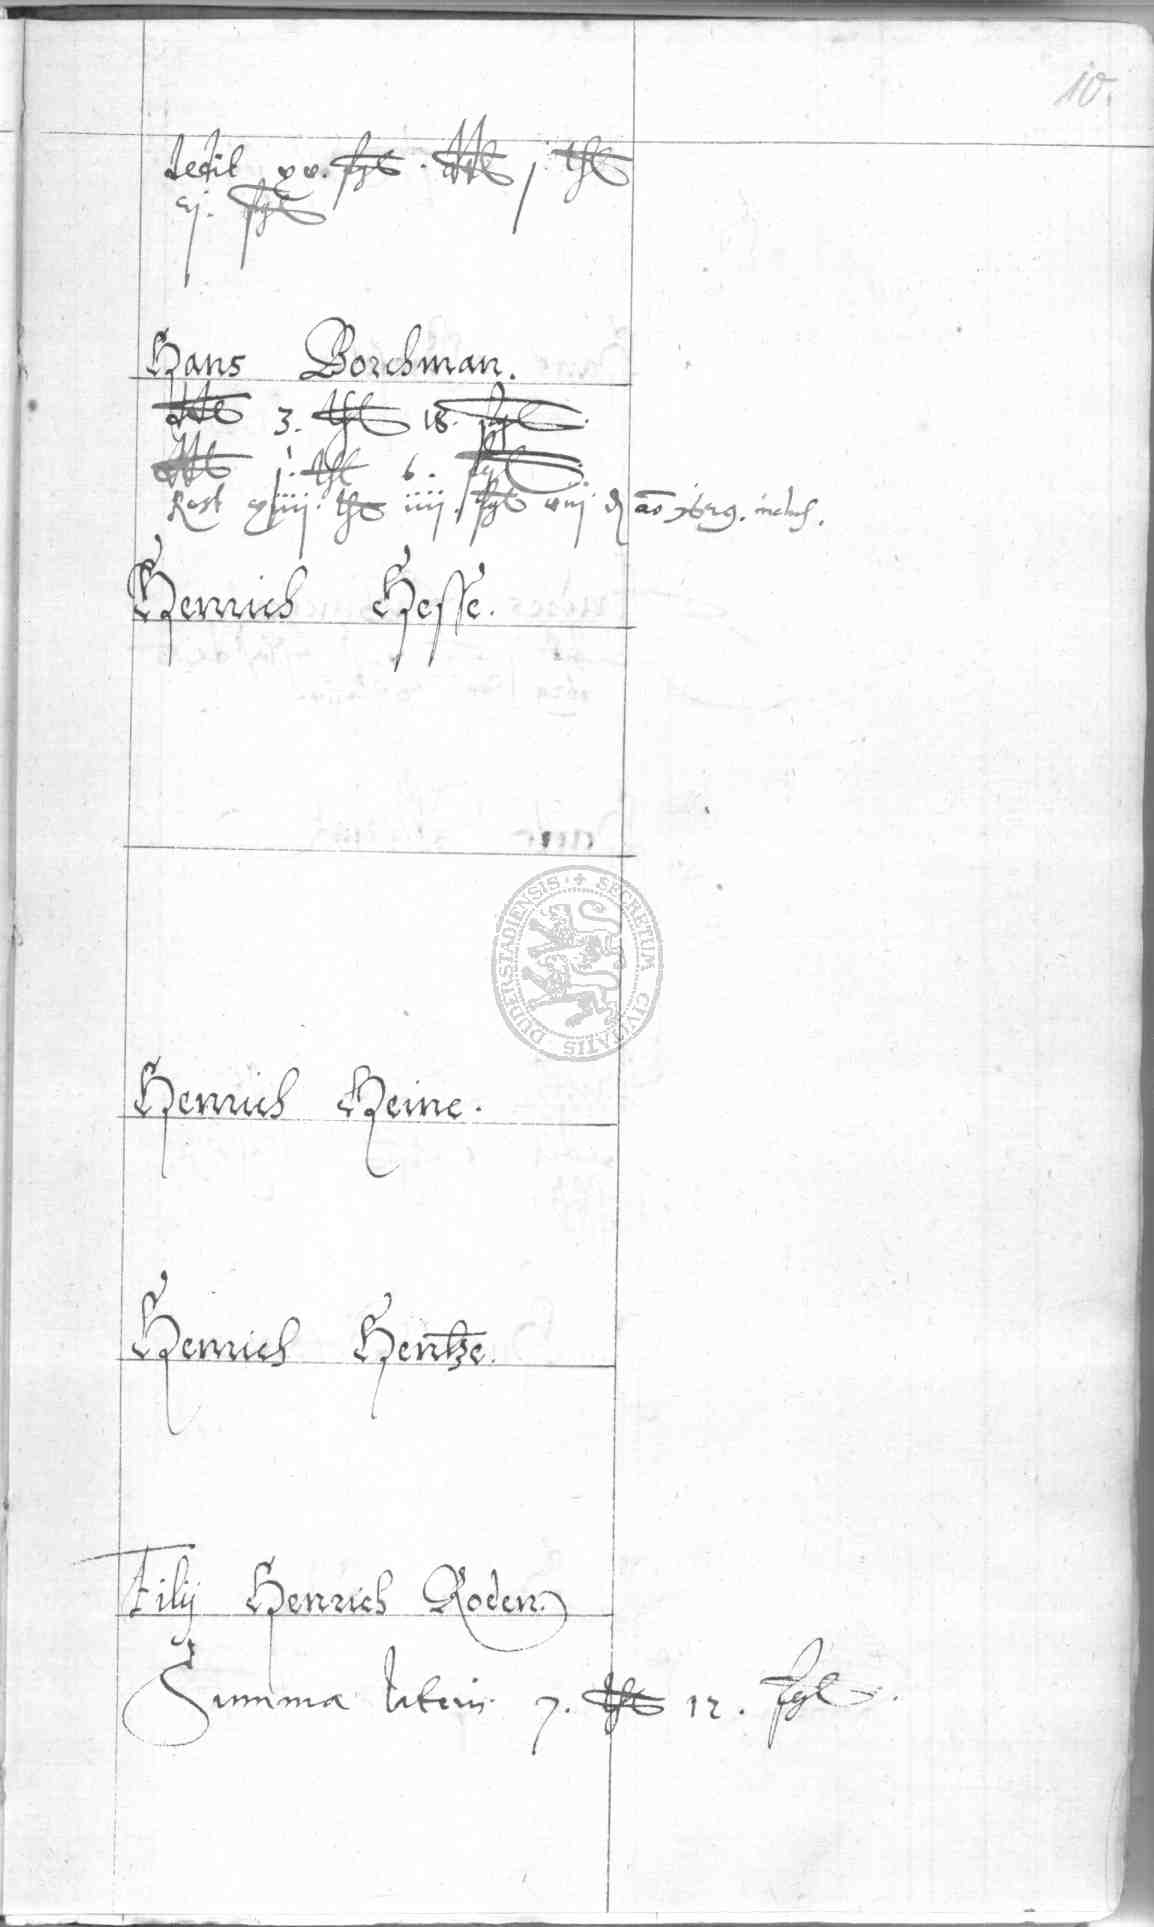 10.
dedit xv. ßgl. ddt j. thl
ij. ßgl
Hans Borchman.
ddt 3. thl 18. ßgl.
ddt j. thl 6. ßgl.
Rest xiiij. thl iiij. ßgl viij ₰ ao 1629. inclus.
Henrich Hesse.
SECRETUM CIVITATIS DUDERSTADIENSIS
Henrich Heine.
Henrich Hentze.
Filij Henrich Roden.
Summa lateris 7. thl 12. ßgl.